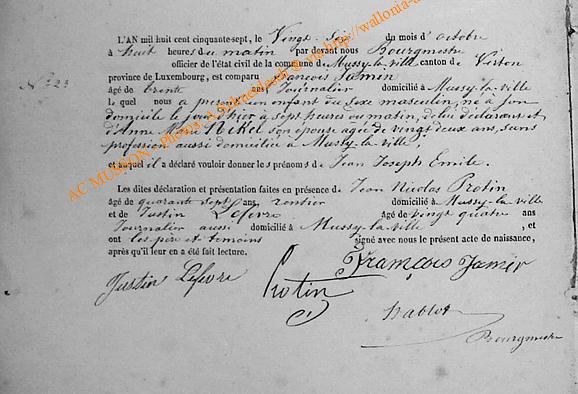 L'AN mil huit cent cinquante-sept, le Vingt Six du mois d'octobre
à huit heures du matin par devant nous Bourgmestre
officier de l'état civil de la commune de Mussy-la-ville, canton de Virton
N° 223
province de Luxembourg, est comparu François Jamin
âgé de trente ans Journalier domicilié à Mussy-la-ville
Lequel nous a présenté un enfant du sexe masculin, né à son
domicile le jour d'hier à sept heures du matin, de lui déclarant et
d'Anne Marie Nekel son épouse agée de vingt deux ans, sans
profession aussi domiciliée à Mussy-la-ville
et auquel il a déclaré vouloir donner les prénoms de Jean Joseph Emile.
Les dites déclaration et présentation faites en présence de Jean Nicolas Protin
âgé de quarante sept ans, rentier domicilié à Mussy-la-ville
et de Justin Lefevre âgé de vingt quatre ans
Journalier aussi domicilié à Mussy-la-ville, et
ont les père et temoins signé avec nous le présent acte de naissance,
après qu'il leur en a été fait lecture.
François Jamin
Justin Lefevre
Protin
Bourgmestre
AC MUSSON
http://wallonia-a